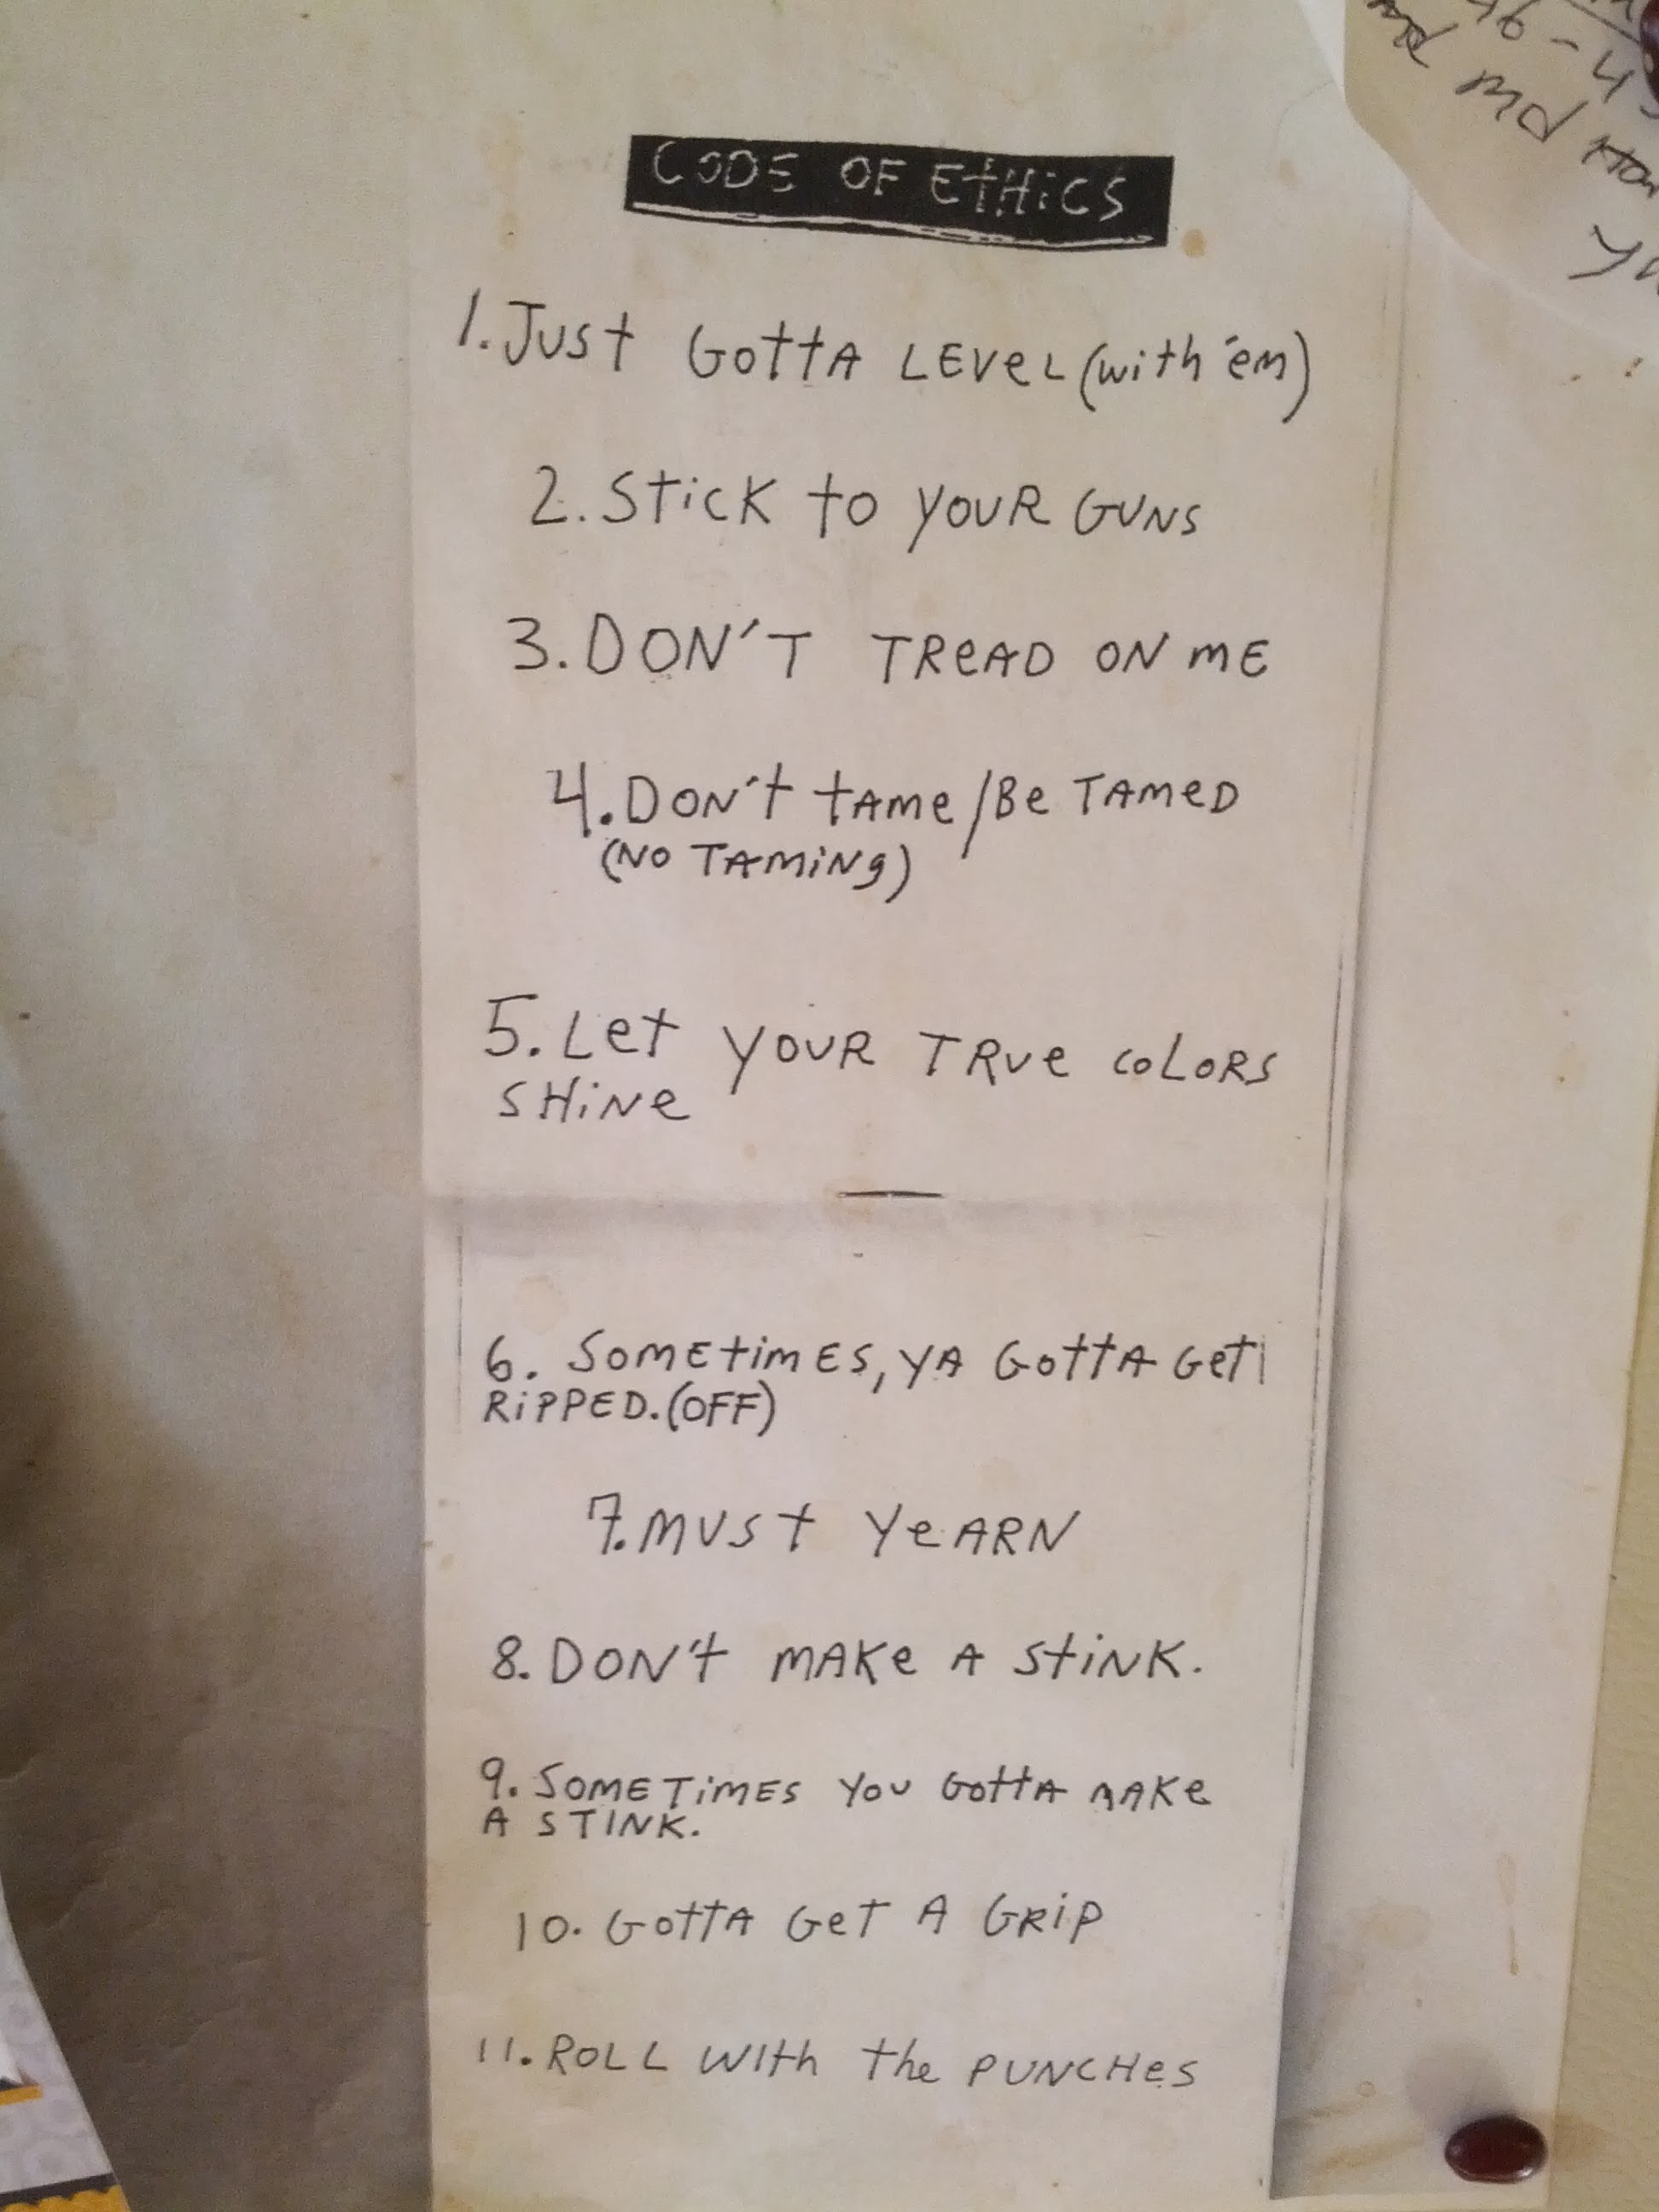 CODE OF EtHiCS
1. JUSt GottA LEVeL (with 'em)
2. StiCK to YOUR GUNS
3. DON'T TReAD ON mE
4. DON't tAme / Be TAmeD
(NO TAMiNg)
5. Let YOUR TRUe coLoRS
SHiNe
6. SOMEtimES, YA GottA Get
RiPPED. (OFF)
7. MUSt YeARN
8. DON't MAKe A StiNK.
9. SOMETiMES YOU GottA MAKe
A STINK.
10. GottA GeT A GRiP
11. ROLL WIth the PUNCHeS
md